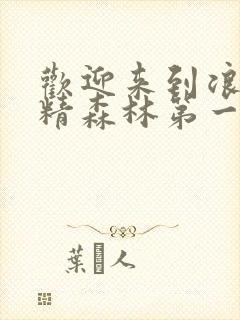 歡迎来到浪
精森林第一
葉 人